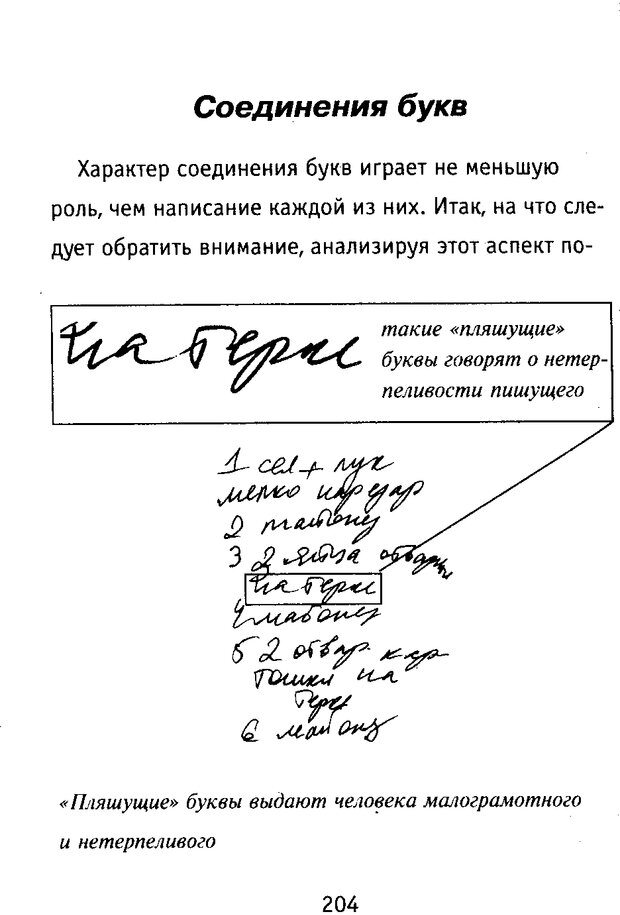 Соединения букв
Характер соединения букв играет не меньшую
роль, чем написание каждой из них. Итак, на что сле-
дует обратить внимание, анализируя этот аспект по-
на терке
такие «пляшущие»
буквы говорят о нетер-
пеливости пишущего
1 сел+ лук
мелко нарезар
2 майонез
3 2 яйца отварн
на терке
4 майонез
5 2 отвар. кар
тошки на
терке
6 майонез
«Пляшущие» буквы выдают человека малограмотного
и нетерпеливого
204